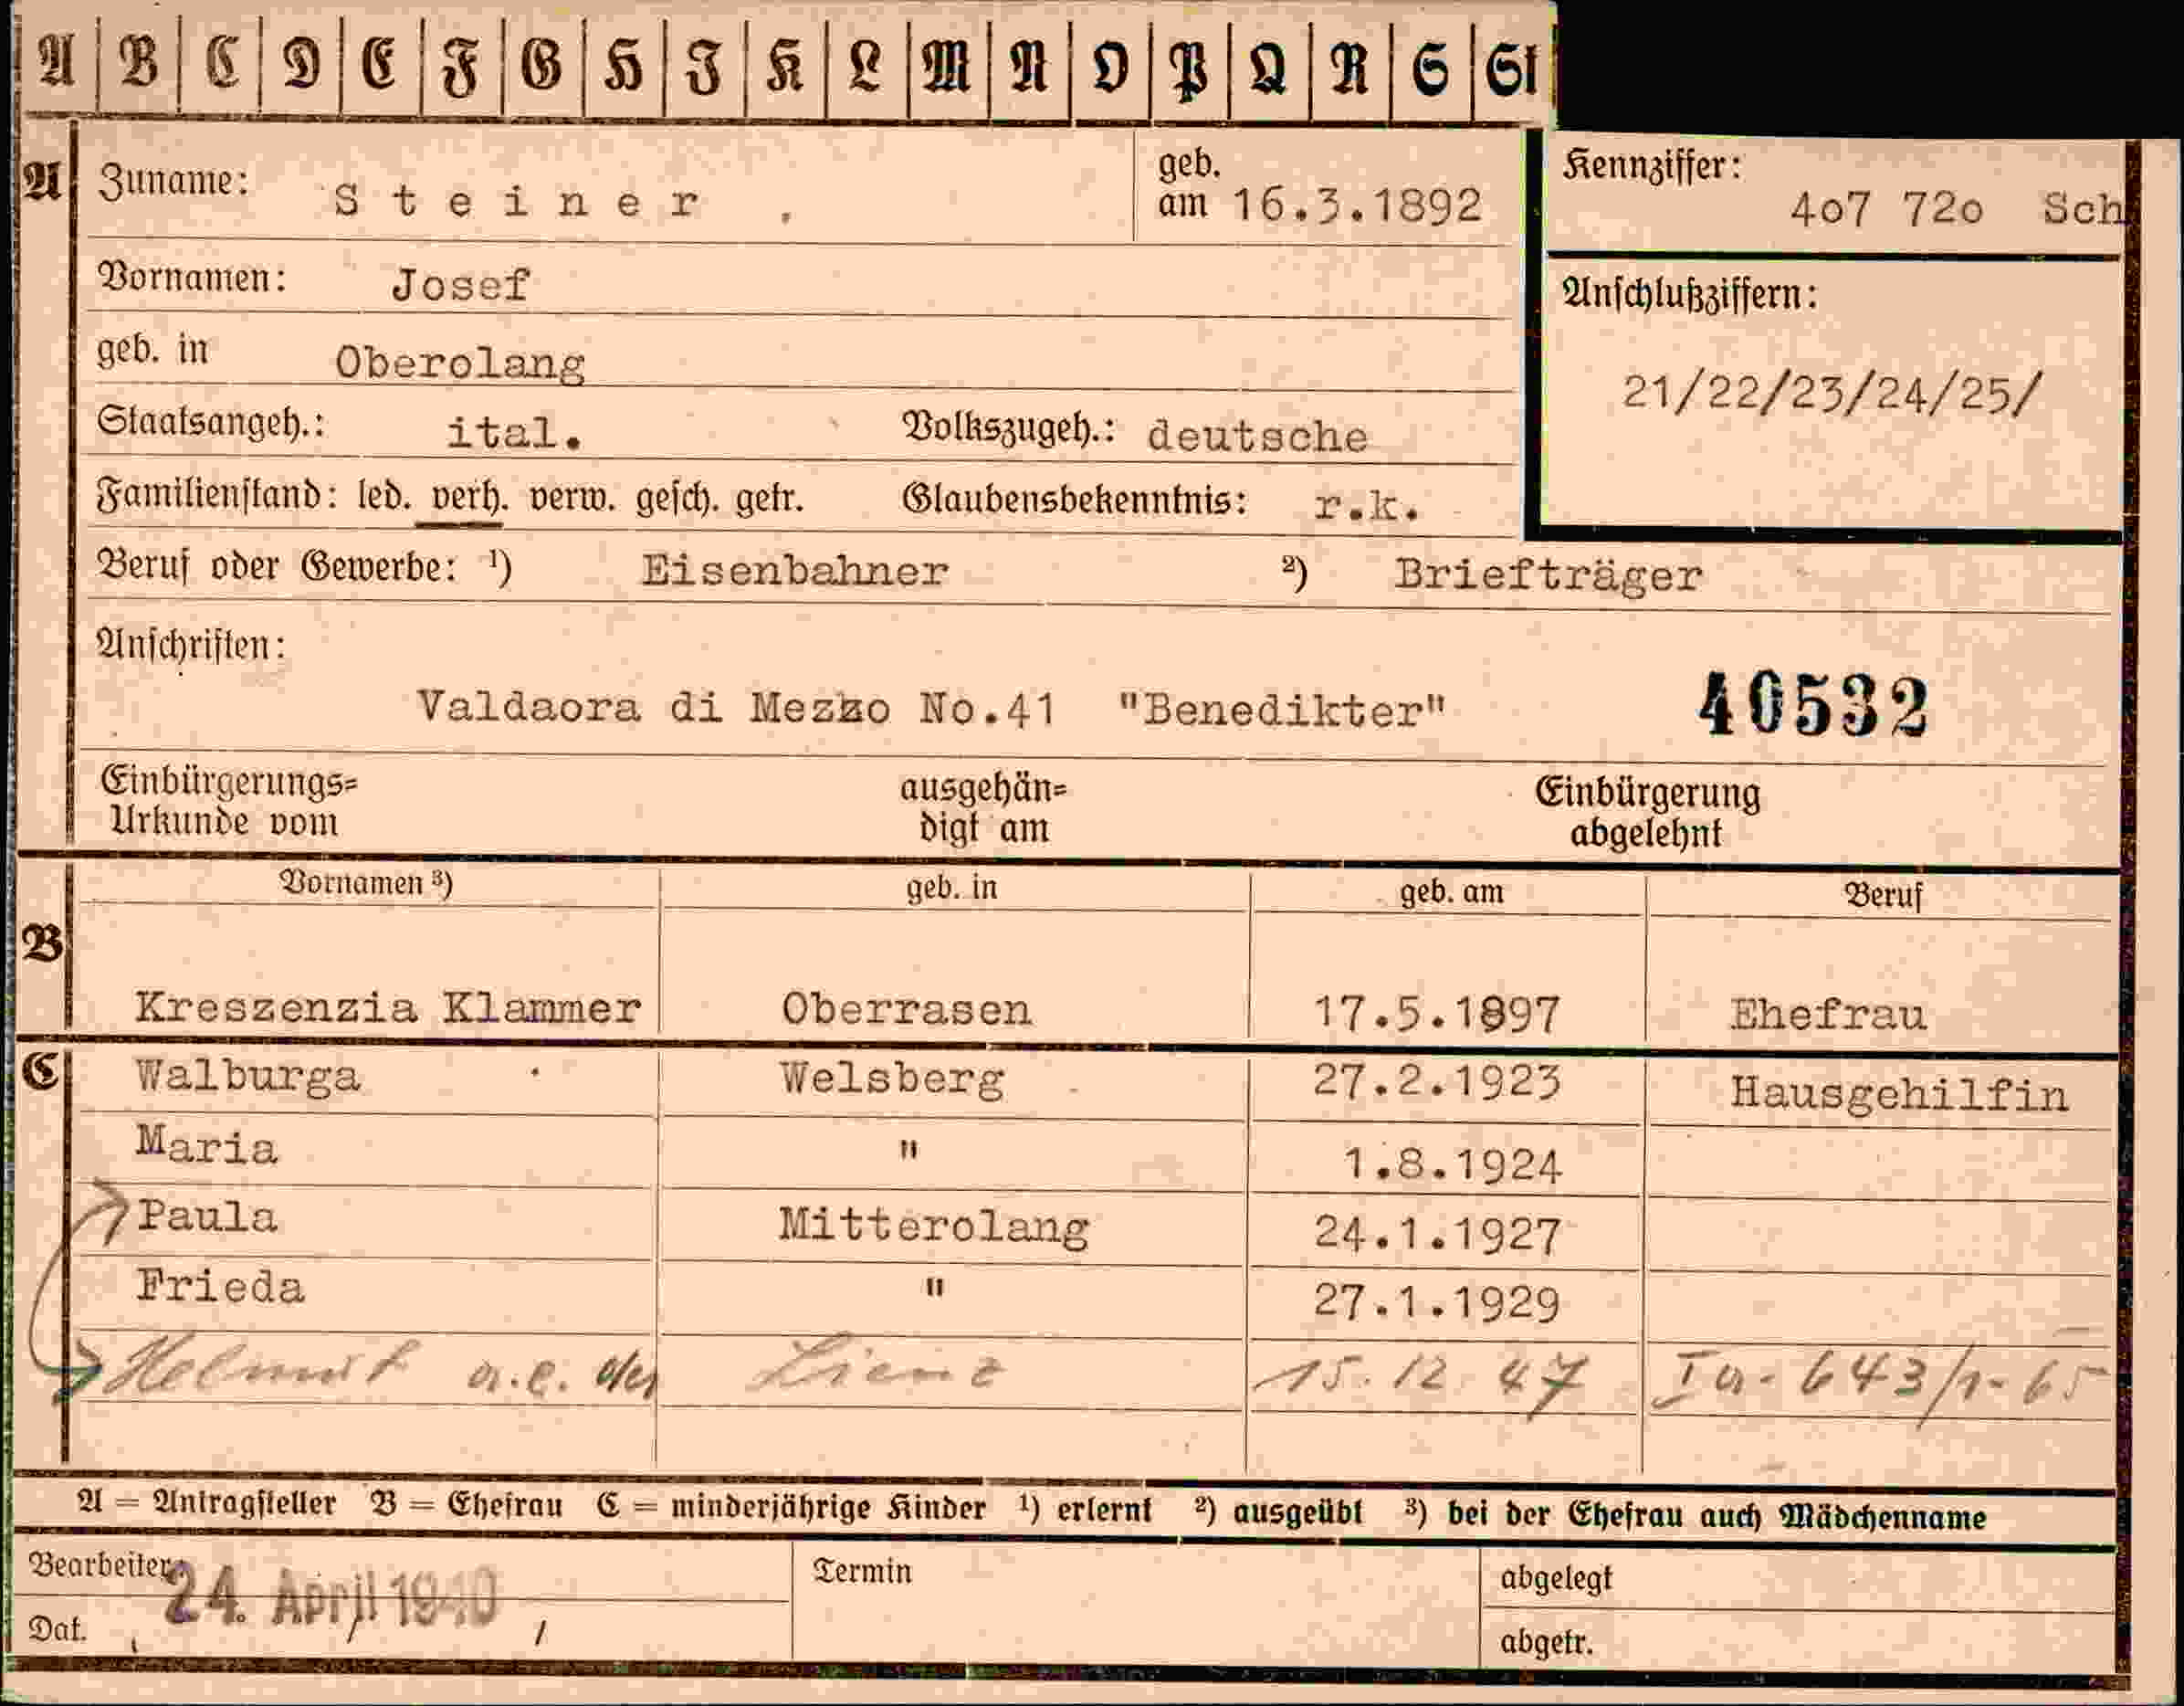 A B C D E F G H I K L M N O P Q R S St
A Zuname: Steiner . geb. am 16.3.1892
Kennziffer: 4o7 72o Sch
Vornamen: Josef
Anschlußziffern:
21/22/23/24/25/
geb. in Oberolang
Staatsangeh.: ital. Volkszugeh.: deutsche
Familienstand: led. verh. verw. gesch. getr. Glaubensbekenntnis: r.k.
Beruf oder Gewerbe: ¹) Eisenbahner ²) Briefträger
Anschriften:
Valdaora di Mezzo No.41 "Benedikter" 40532
Einbürgerungs= ausgehän= Einbürgerung
Urkunde vom digt am abgelehnt
Vornamen ³) geb. in geb. am Beruf
B
Kreszenzia Klammer Oberrasen 17.5.1897 Ehefrau
C Walburga Welsberg 27.2.1923 Hausgehilfin
Maria " 1.8.1924
Paula Mitterolang 24.1.1927
Frieda " 27.1.1929
Helmut a.e. der Lienz 15.12.47 Ia-643/1-65
A = Antragsteller B = Ehefrau C = minderjährige Kinder ¹) erlernt ²) ausgeübt ³) bei der Ehefrau auch Mädchenname
Bearbeiter: Termin abgelegt
24. April 1940
Dat. abgetr.